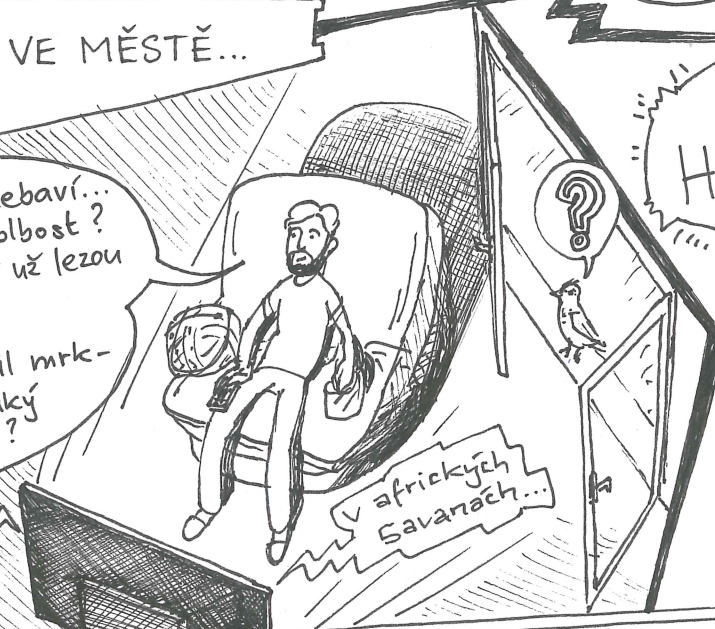 VE MĚSTĚ...
ebaví...
blbost?
už lezou
il mrk-
lký
?
?
v afrických
savanách...
H